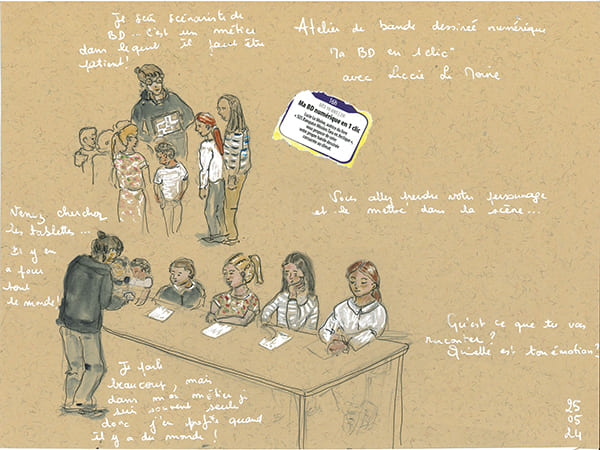 Je suis scénariste de
BD... C'est un métier
dans lequel il faut être
patient!
Atelier de bande dessinée numérique
"Ma BD en 1 clic"
avec Lucie Le Moine
16h
Ma BD numérique en 1 clic
Lucie Le Moine, autrice du livre
votre propre bande dessinée
Vous allez prendre votre personnage
et le mettre dans la scène...
Venez chercher
les tablettes...
Il y en
a pour
tout
le monde!
Qu'est ce que tu vas
raconter?
Quelle est ton émotion?
Je parle
beaucoup, mais
dans mon métier je
suis souvent seule
donc j'en profite quand
il y a du monde!
25
05
24